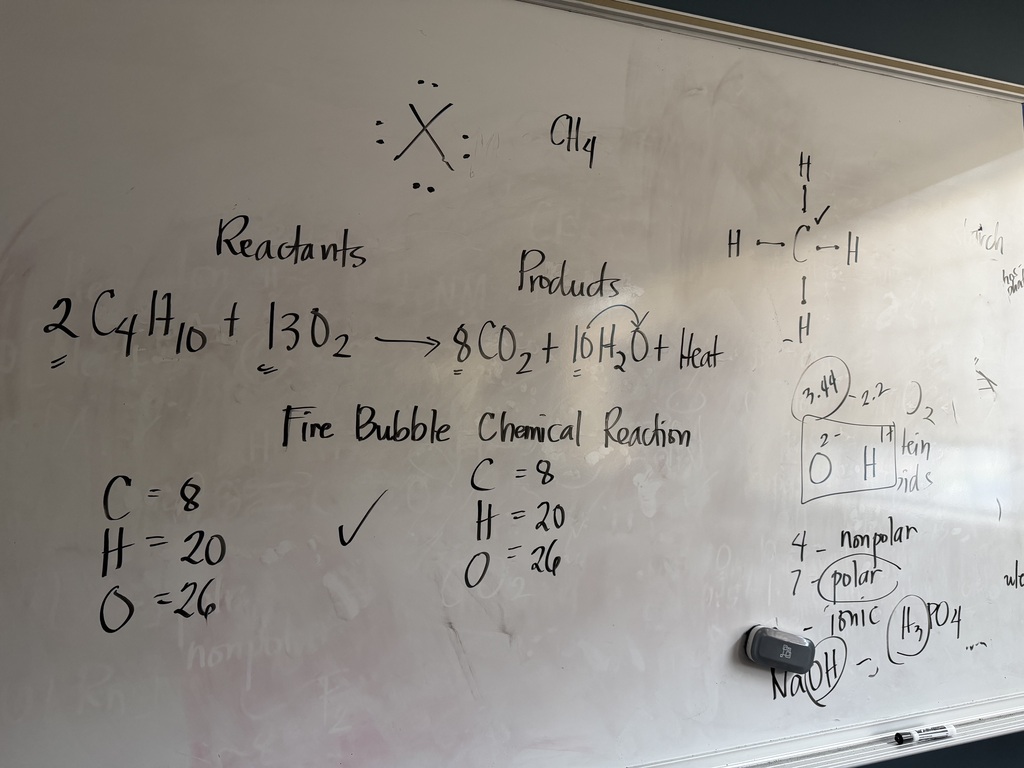 X
CH4
H
H - C - H
H
Reactants
Products
2 C4H10 + 13O2 → 8CO2 + 10H2O + Heat
Fire Bubble Chemical Reaction
C = 8
H = 20
O = 26
✓
C = 8
H = 20
O = 26
3.44 - 2.2
O2
O 2- H 1+
tein
ids
4 - nonpolar
7 - polar
- ionic
H3PO4
NaOH